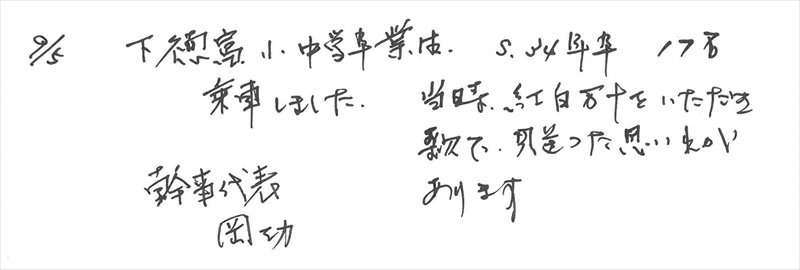 9/5 下徳富小.中学卒業生. S.34年卒 17名
乗車しました. 当時.紅白万十をいただき
歌で.見送った思い出が
幹事代表 あります
岡功